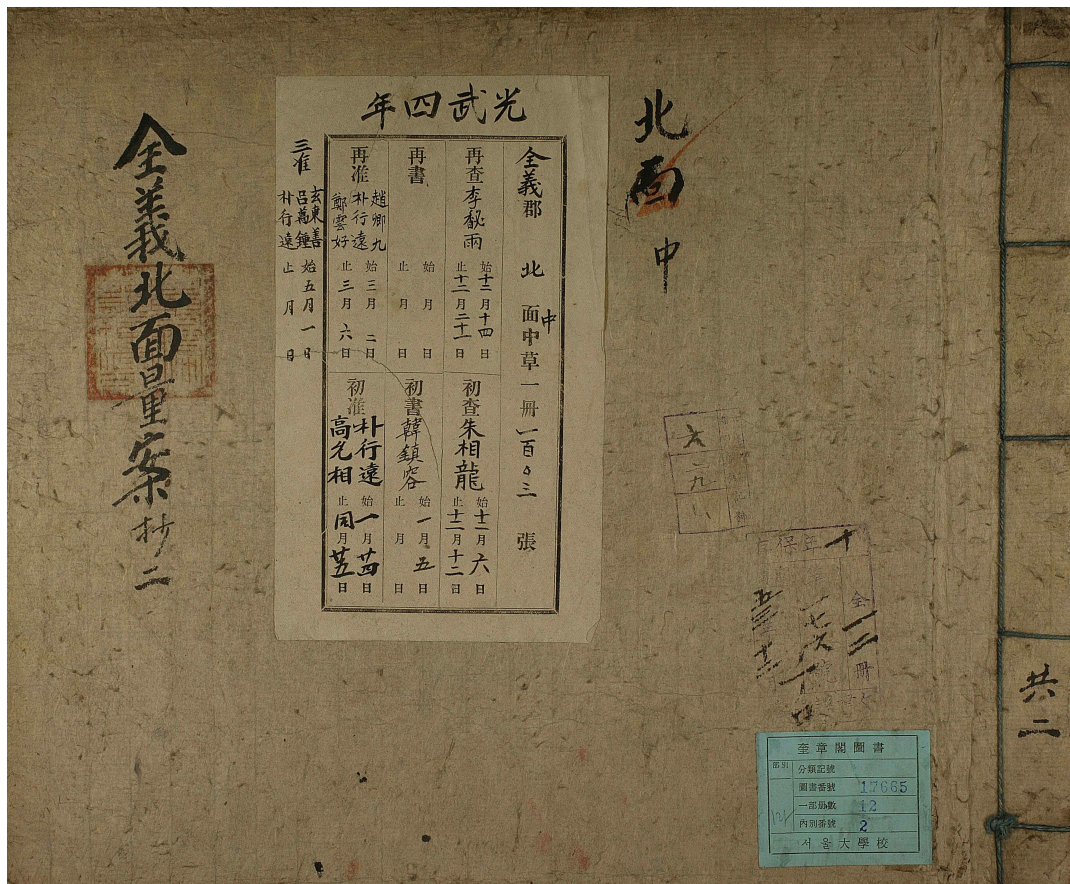 北面
中
光武四年
全義郡 北 面中草一冊一百〇三 張
中
再查 李秘雨
始十二月十四日
止十二月二十二日
初查 朱相龍
始十二月六日
止十二月十二日
再書
始 月 日
止 月 日
初書 韓鎮容
始一月五日
止 月 日
再准 趙卿九
朴行遠
鄭雲好
始三月二日
止三月六日
初准 朴行遠
高允相
始一月廿四日
止同月廿五日
三准 玄東善
呂萬鍾
朴行遠
始五月一日
止 月 日
全義北面量案抄二
六
二九
共二
奎章閣圖書
部別
分類記號
圖書番號 17665
一部册數 12
內別番號 2
서울大學校